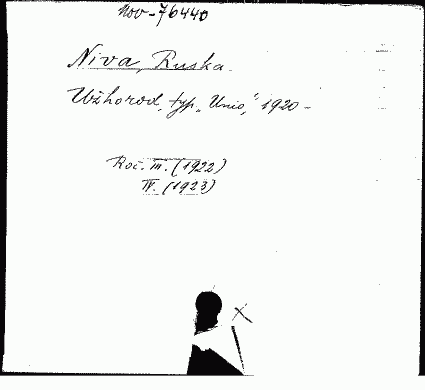 Nov-76440
Niva, Ruska.
Užhorod, typ. „Unio", 1920-
Roč. III. (1922)
IV. (1923)
X